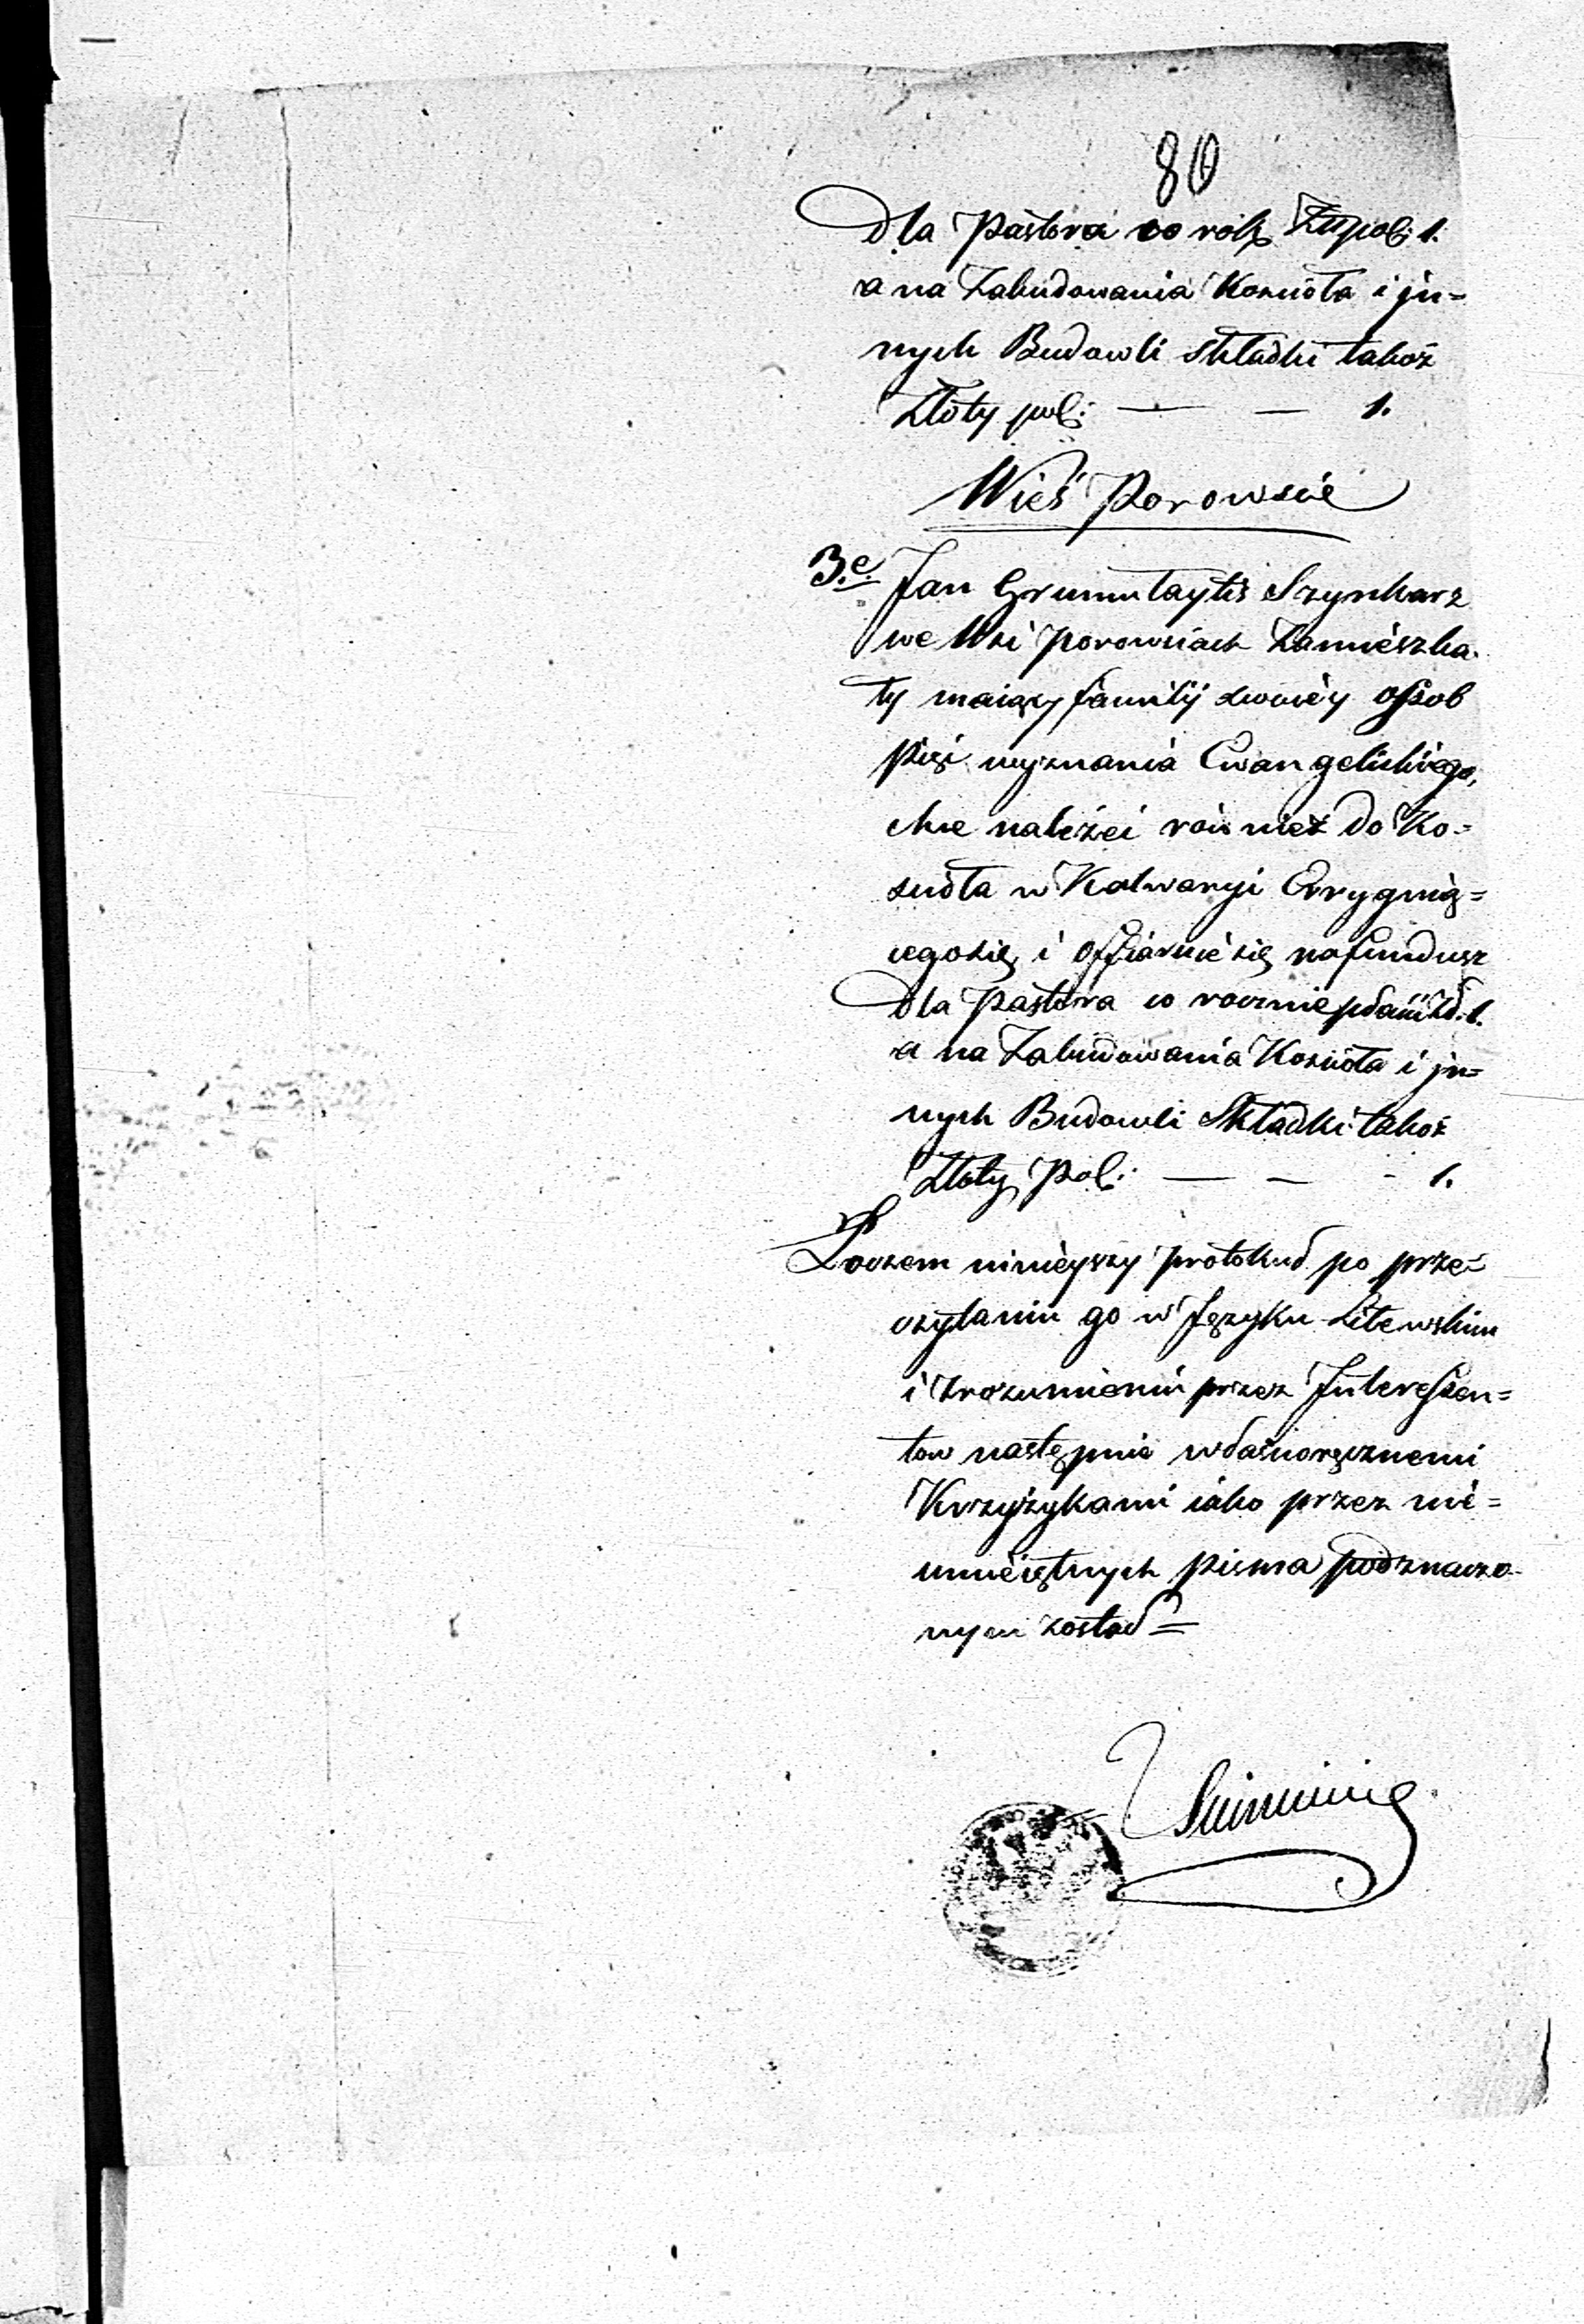 80
Dla Pastora co rok Złł pol: 1.
a na Zabudowania Koscioła i jn=
nych Budowli składki takoż
Złoty pol: — — 1.
Wieś Porowsie
3.e Jan Grumutaytis Szynkarz
we Wsi Porowsiach Zamieszka
ły maiący familij swoiey ossob
pięć wyznania Ewangelickiego,
chce należeć również do Ko=
scioła w Kalwaryi Erygnią=
cego się, i offiaruie się na fundusz
Dla Pastora co rocznie płacić Zł. 1.
a na Zabudowania Koscioła i jn=
nych Budowli Składki takoż
Złoty Pol: — — - 1.
Poczem ninieyszy protokuł po prze=
czytaniu go w Języku Litewskim
i Zrozumieniu przez Interessen=
tow następnie własnoręcznemi
Krzyżykami iako przez nie=
umieiętnych pisma podznaczo
nym został =